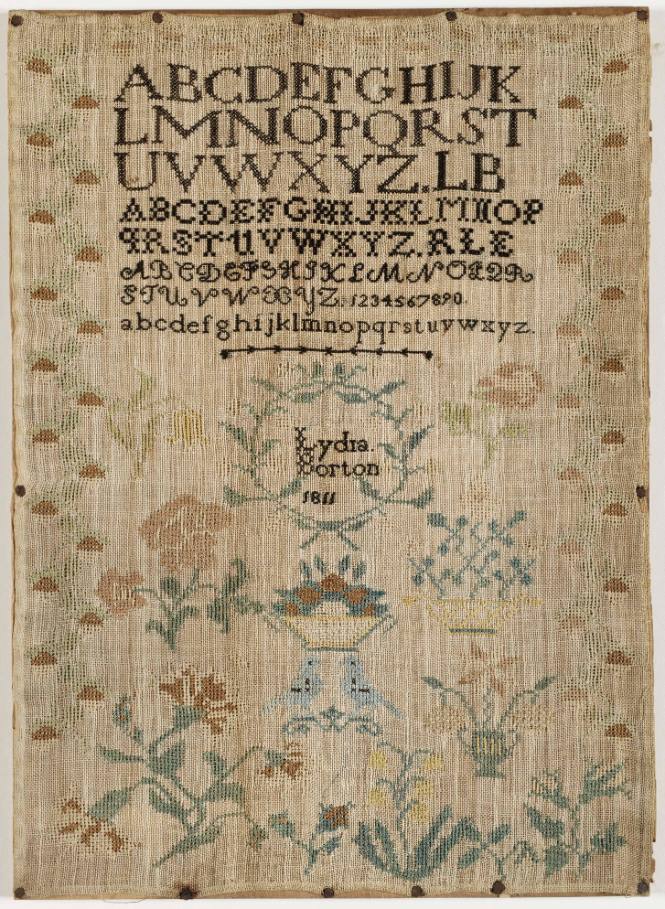 ABCDEFGHIJK
LMNOPQRST
UVWXYZ.LB
ABCDEFGHIJKLMNOP
QRSTUVWXYZ.RLE
ABCDEFGHIKLMNOPQR
STUVWXYZ. 1234567890.
abcdefghijklmnopqrstuvwxyz.
Lydia.
Borton
1811